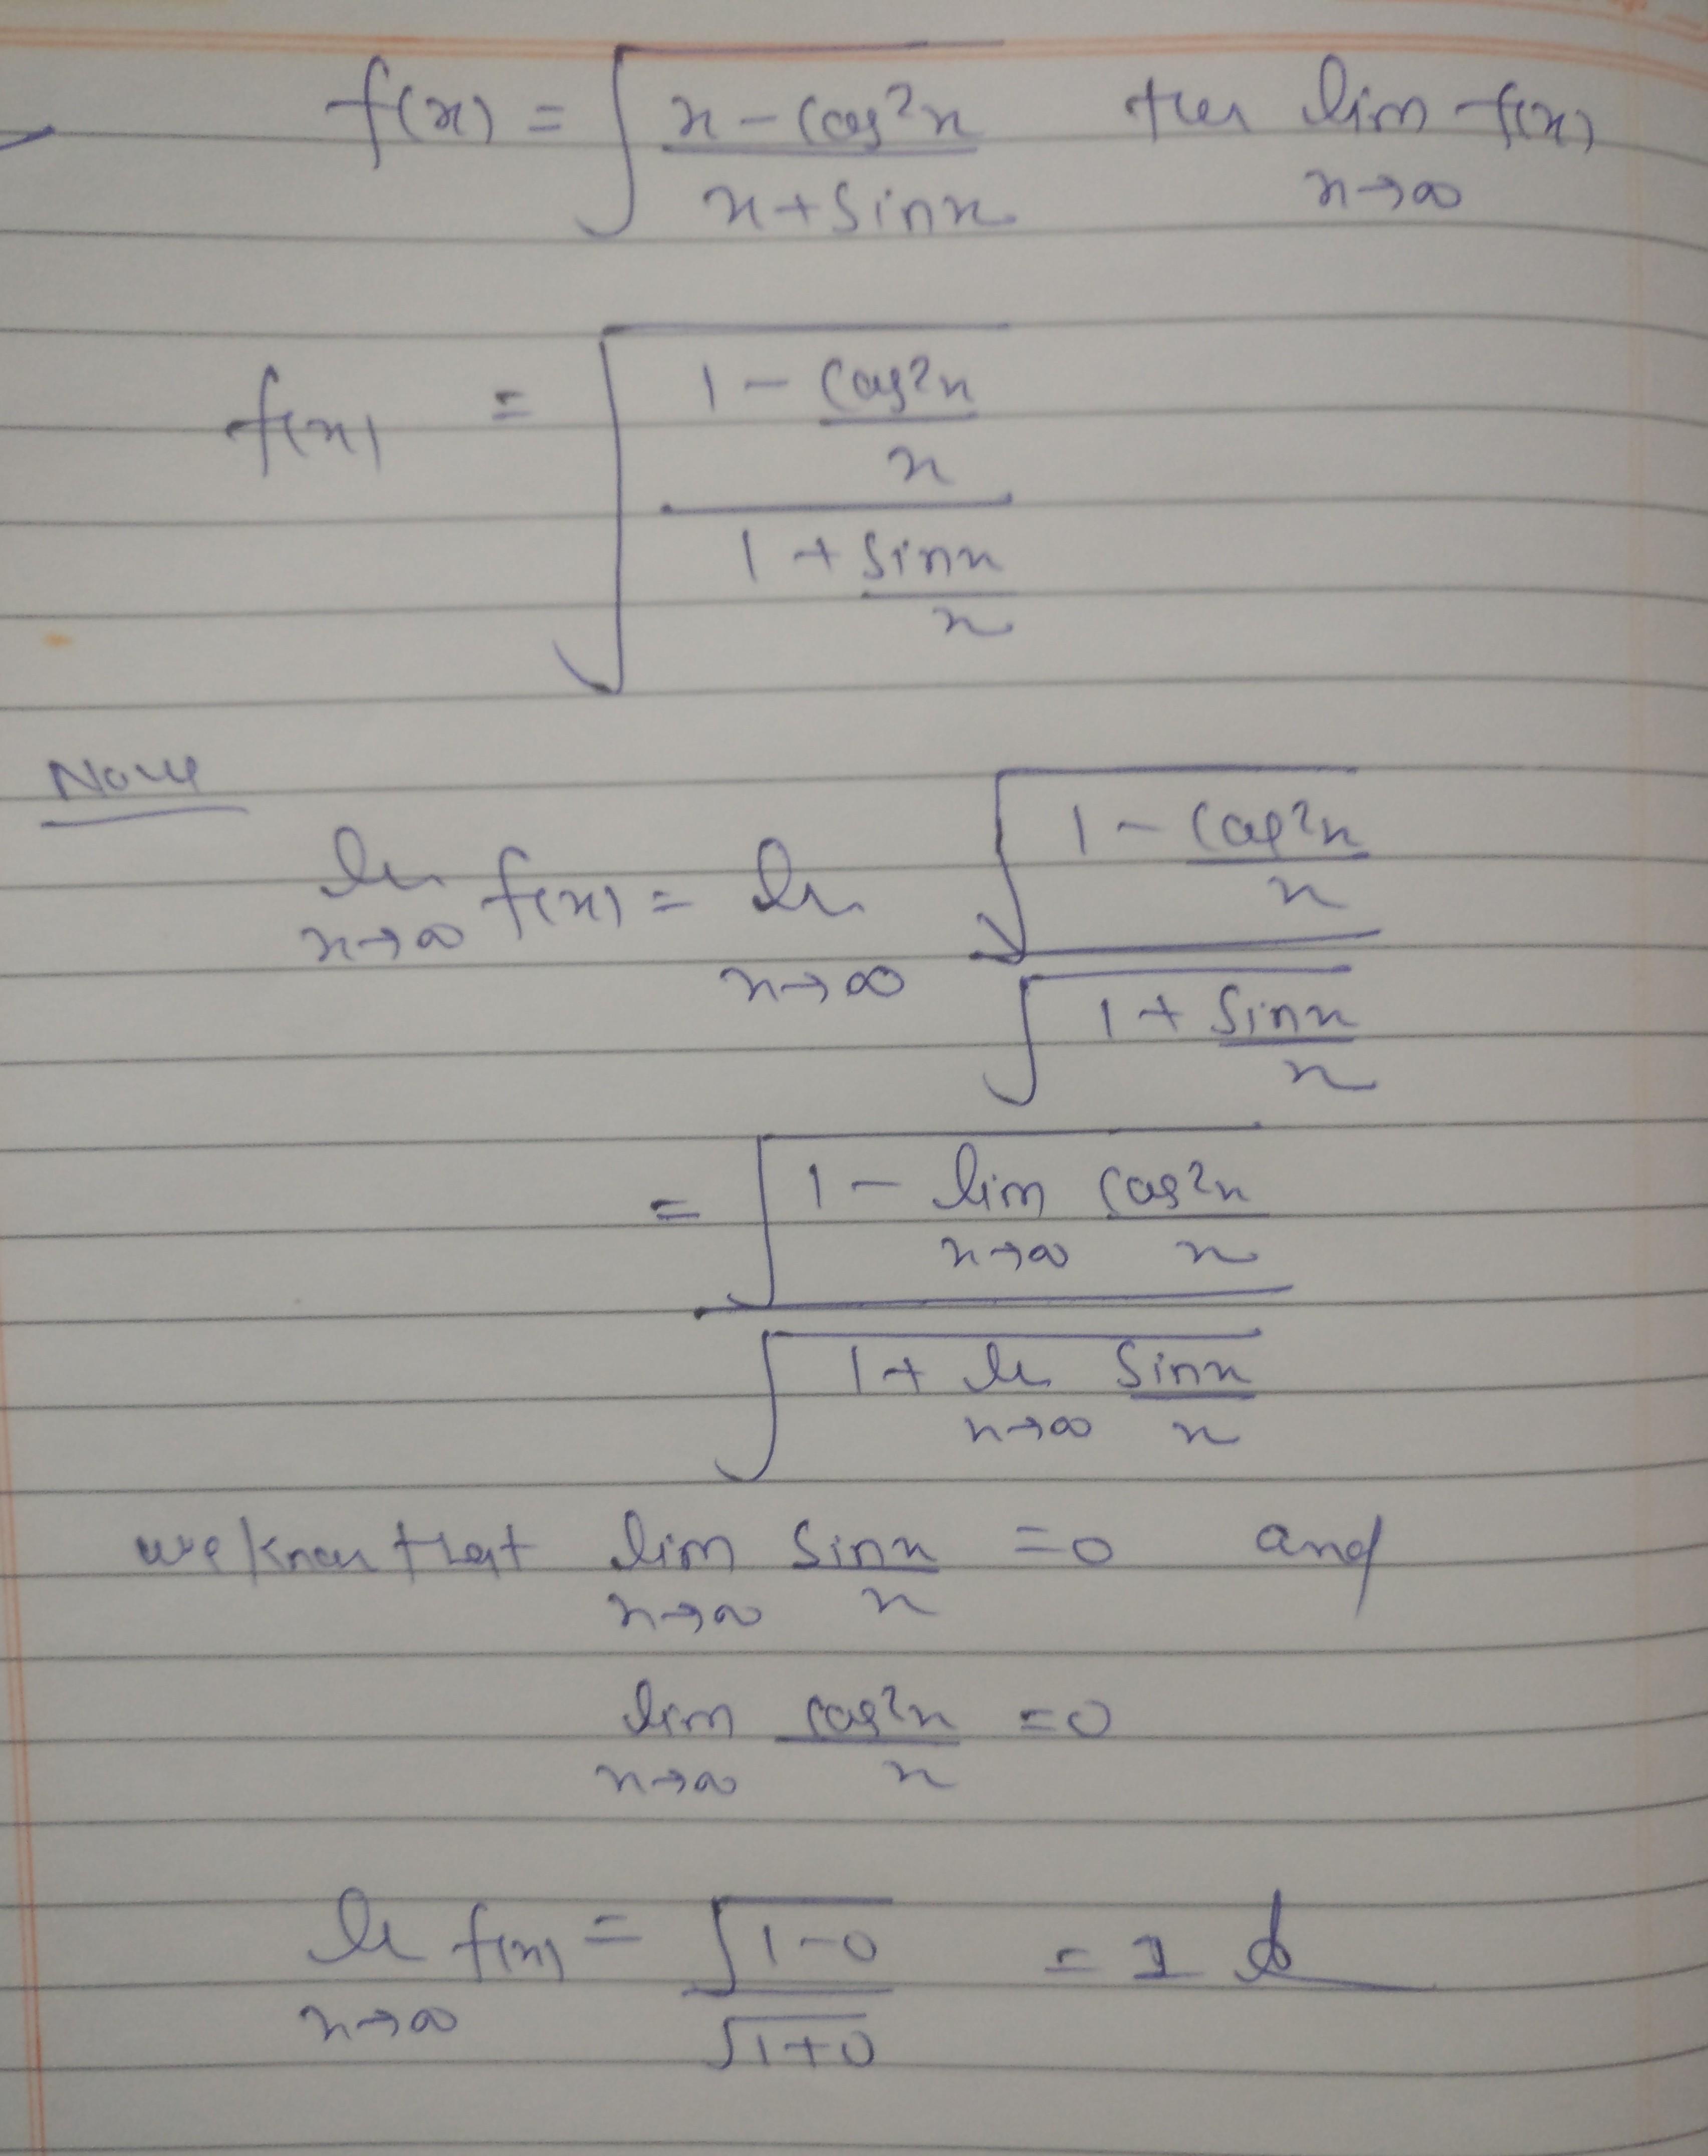 f(x) = √((x - cos²x)/(x + sinx)) then lim x→∞ f(x)
f(x) = √((1 - cos²x/x)/(1 + sinx/x))
Now
lim x→∞ f(x) = lim x→∞ √(1 - cos²x/x) / √(1 + sinx/x)
= √(1 - lim x→∞ cos²x/x) / √(1 + lim x→∞ sinx/x)
we know that lim x→∞ sinx/x = 0 and
lim x→∞ cos²x/x = 0
lim x→∞ f(x) = √(1-0) / √(1+0) = 1